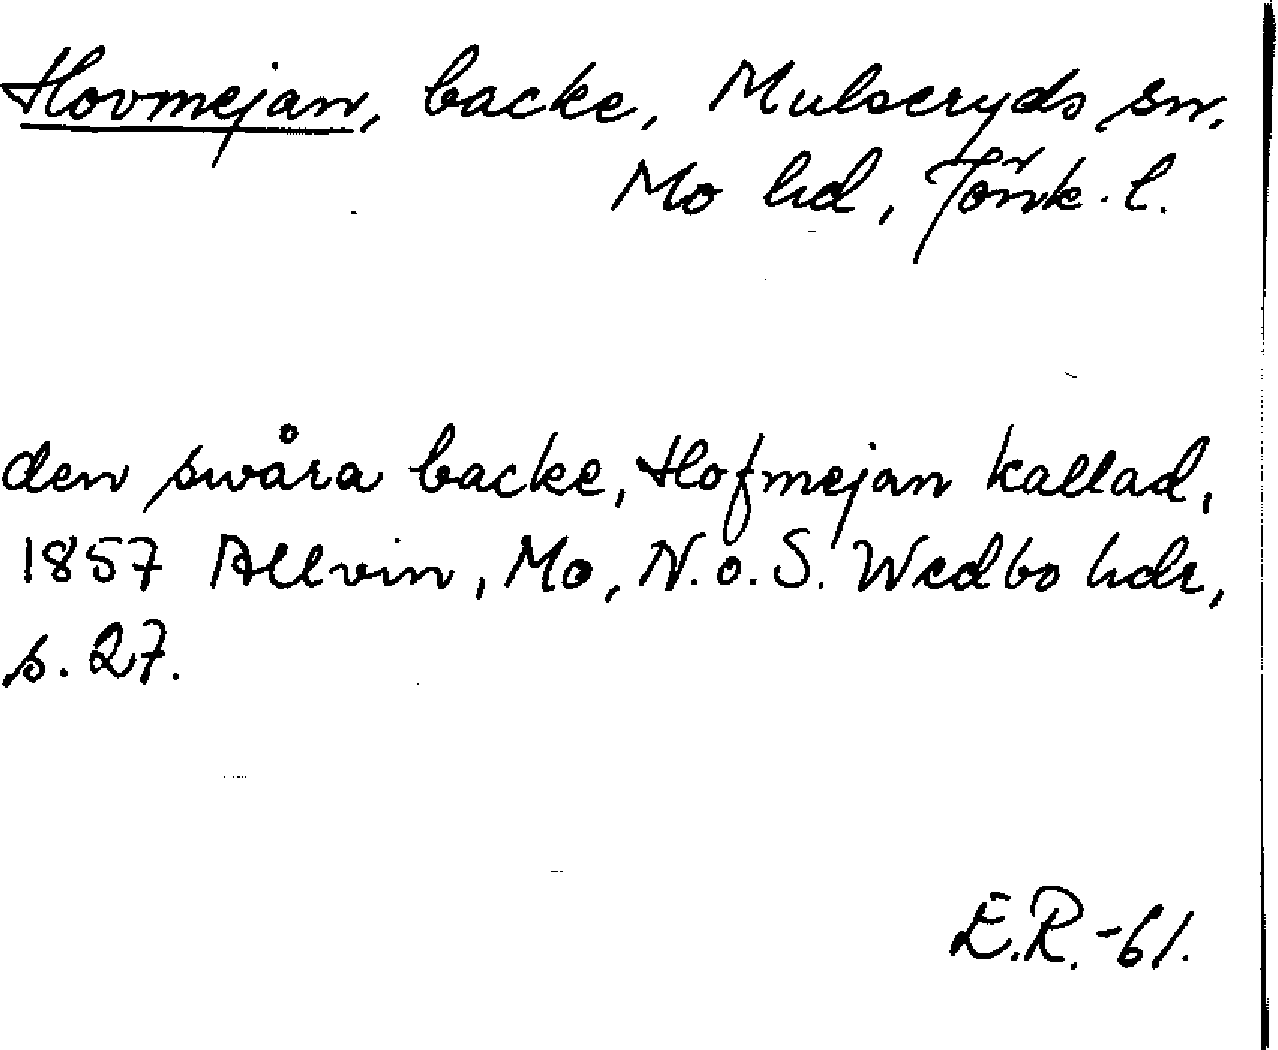 Hovmejan, backe, Mulseryds sn.
Mo hd, Jönk. l.
den swåra backe, Hofmejan kallad,
1857 Allvin, Mo, N. o. S. Wedbo hdr,
s. 27.
E.R.-61.